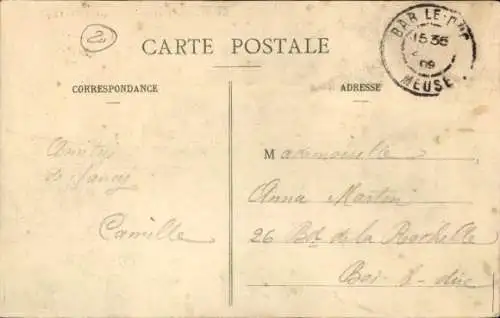 2
CARTE POSTALE
BAR LE-DUC
15 35
09
MEUSE
CORRESPONDANCE
ADRESSE
Amitiés
de Nancy
Camille
Mademoiselle
Anna Martin
26 Bd de la Rochelle
Bar-l-duc